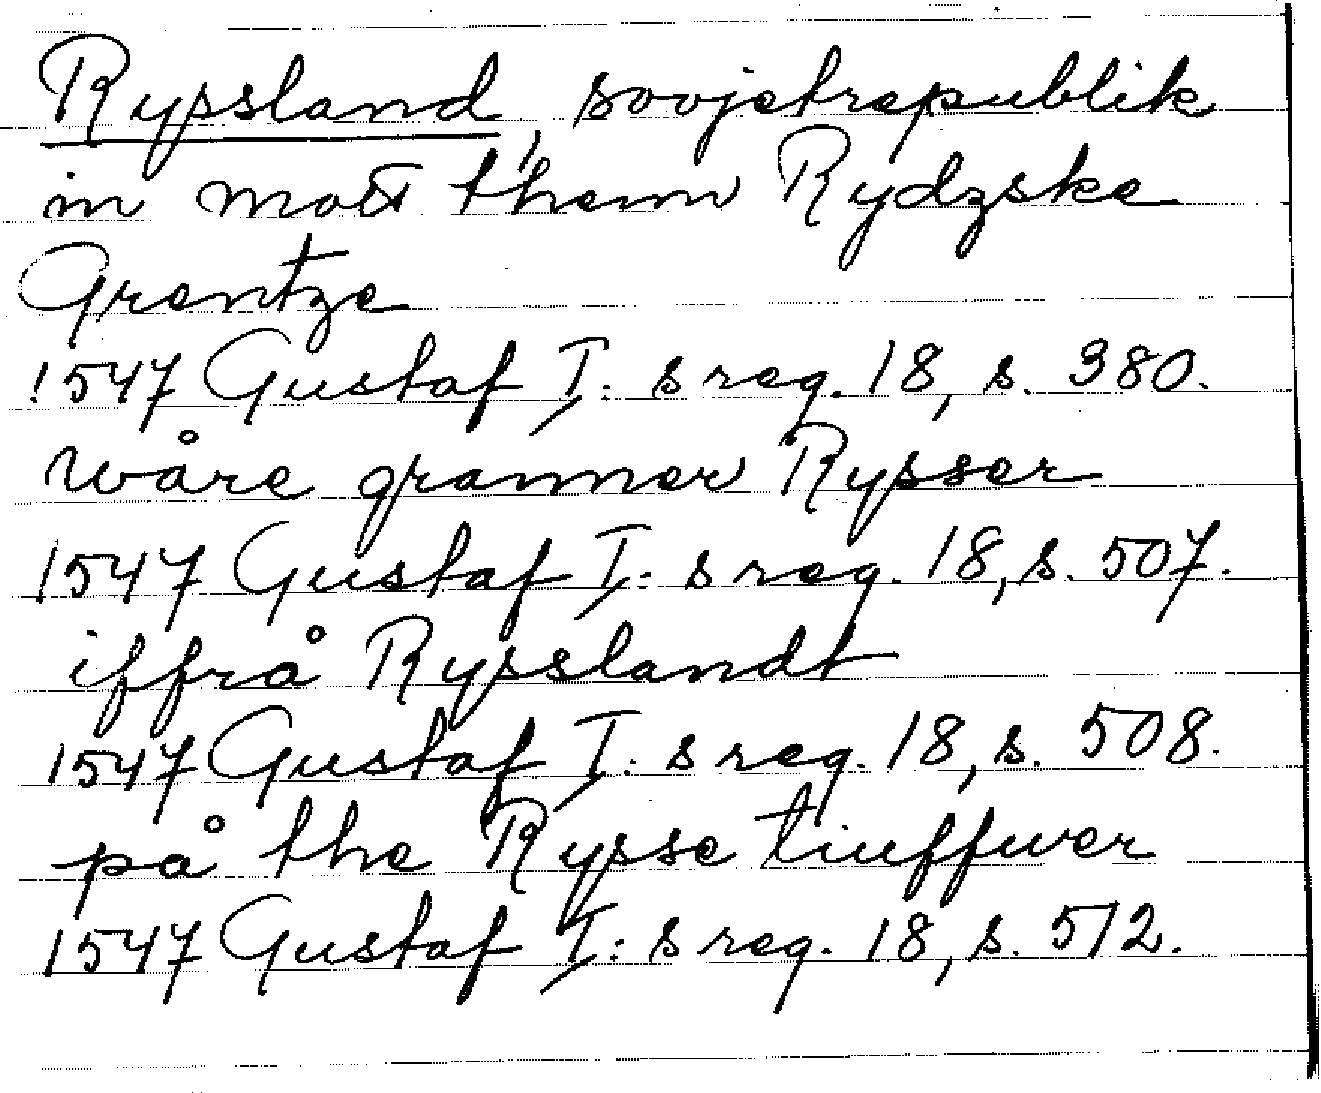 Ryssland, sovjetrepublik
in mott them Rydzske
Grentze
1547 Gustaf I: s reg. 18, s. 380.
wåre granner Rysser
1547 Gustaf I: s reg. 18, s. 507.
iffrå Rysslandt
1547 Gustaf I: s reg. 18, s. 508.
på the Rysse tiuffwer
1547 Gustaf I: s reg. 18, s. 512.